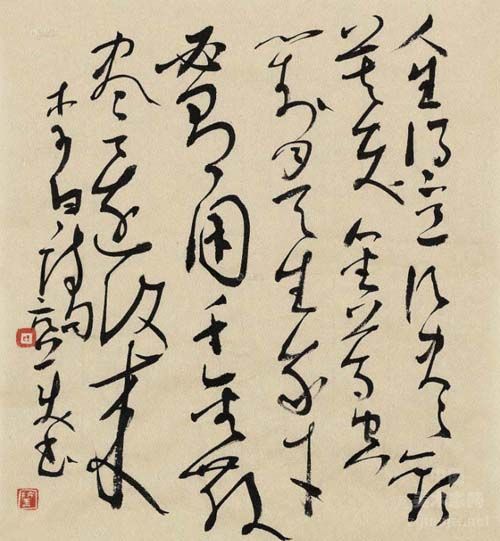 人生得意须尽欢
莫使金尊空
对月天生我才
必有用千金散
尽还复来
李白诗句